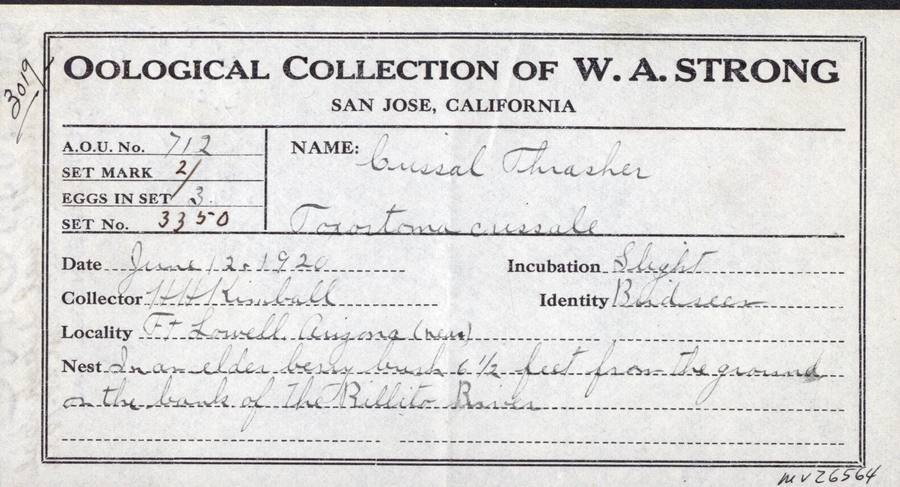 3019
OOLOGICAL COLLECTION OF W. A. STRONG
SAN JOSE, CALIFORNIA
A.O.U. No. 712
SET MARK 2/
EGGS IN SET 3
SET No. 3350
NAME: Crissal Thrasher
Toxostoma crissale
Date June 12, 1920
Incubation Slight
Collector H H Kimball
Identity Bird seen
Locality Ft Lowell, Arizona (near)
Nest In an elder berry bush 6 1/2 feet from the ground
on the bank of the Rillito River
mv26564